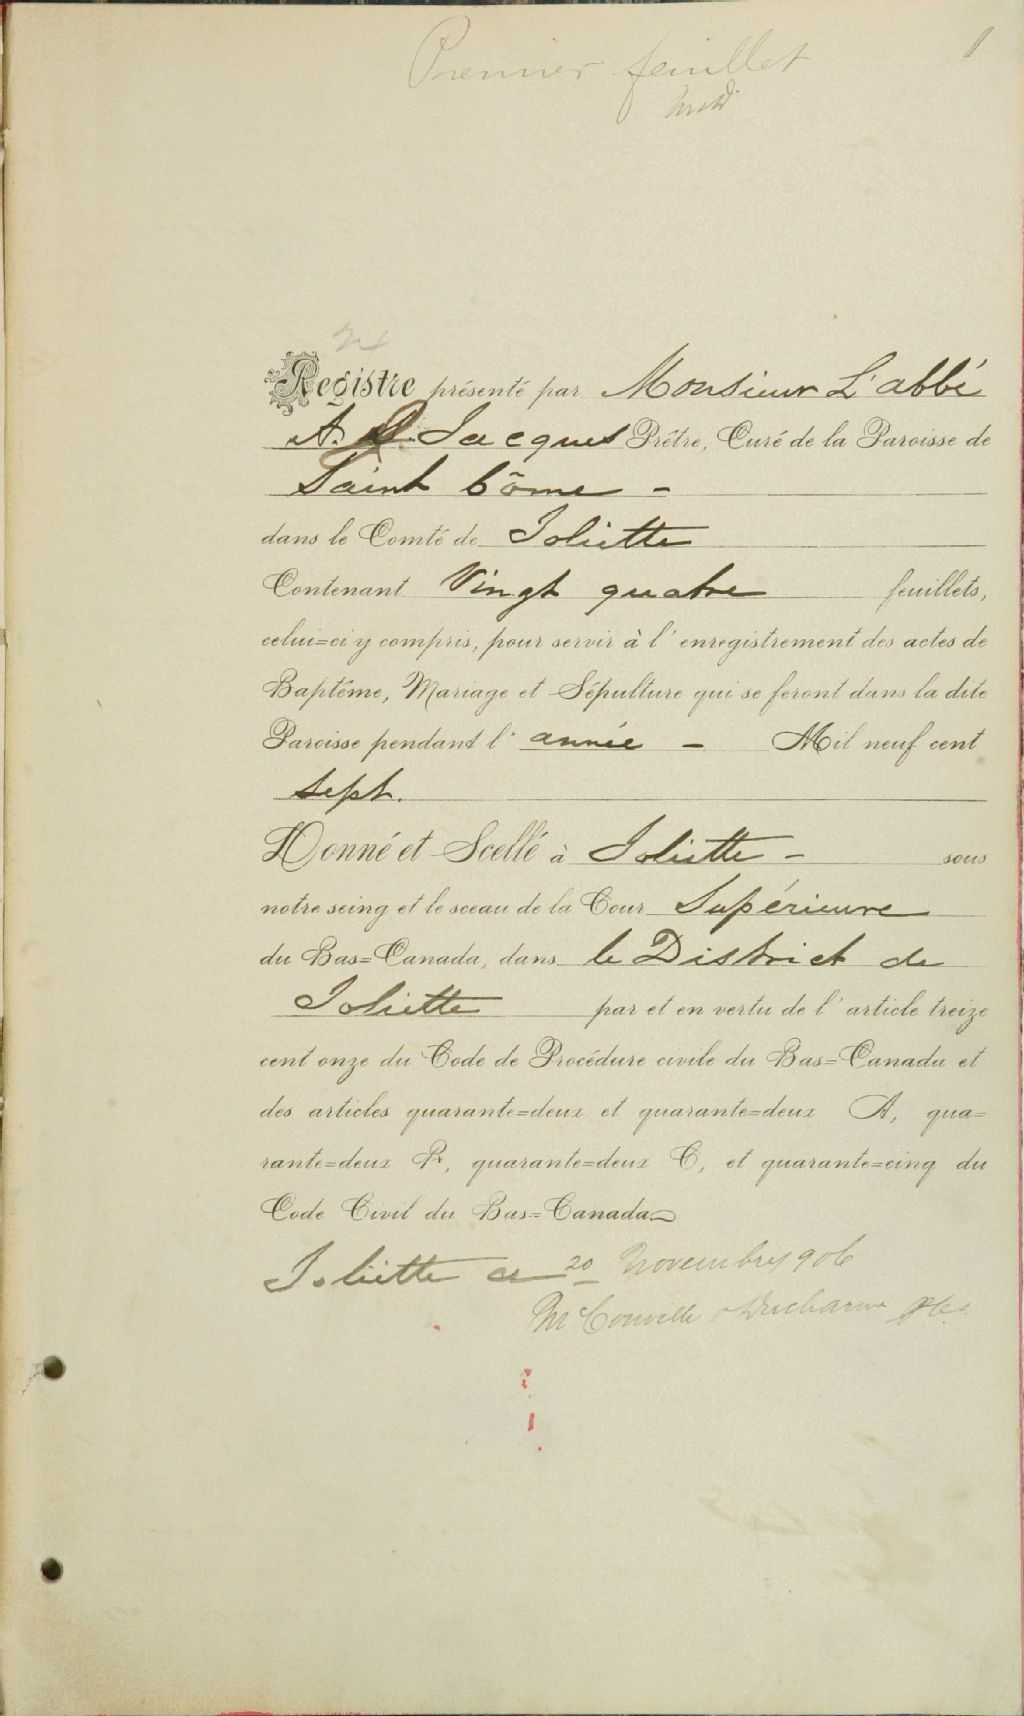 Premier feuillet
1
Registre présenté par Monsieur L'abbé
A. Jacques Prêtre, Curé de la Paroisse de
Saint Côme -
dans le Comté de Joliette
Contenant Vingt quatre feuillets,
celui=ci y compris, pour servir à l'enregistrement des actes de
Baptême, Mariage et Sépulture qui se feront dans la dite
Paroisse pendant l'année - Mil neuf cent
sept.
Donné et Scellé à Joliette - sous
notre seing et le sceau de la Cour Supérieure
du Bas=Canada, dans le District de
Joliette par et en vertu de l'article treize
cent onze du Code de Procédure civile du Bas=Canada et
des articles quarante=deux et quarante=deux A, qua=
rante=deux B, quarante=deux C, et quarante=cinq du
Code Civil du Bas=Canada
Joliette ce 20 Novembre 1906
McConville & Ducharme